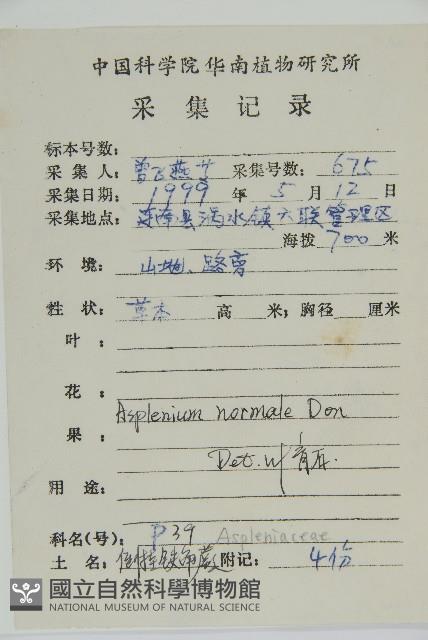 中国科学院华南植物研究所
采集记录
标本号数:
采集人: 曾飞燕 采集号数: 675
采集日期: 1999 年 5 月 12 日
采集地点: 连南县涡水镇大联管理区
海拨 700 米
环境: 山地、路旁
性状: 草本 高 米; 胸径 厘米
叶:
花:
Asplenium normale Don
果:
Det.
用途:
科名(号): P39 Aspleniaceae
土名: 倒挂铁角蕨 附记: 4份
國立自然科學博物館
NATIONAL MUSEUM OF NATURAL SCIENCE